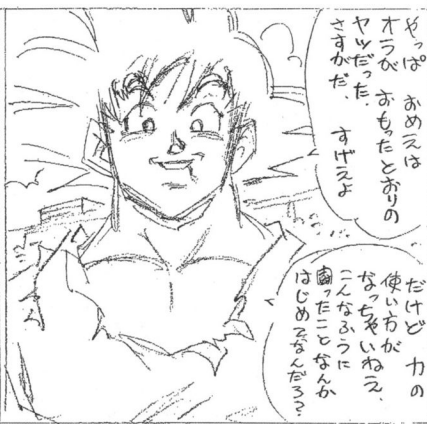 やっぱ おめえは
オラが おもったとおりの
ヤツだった、
さすがだ、 すげえよ
だけど 力の
使い方が
なっちゃいねえ、
こんなふうに
闘ったことなんか
はじめてなんだろ?